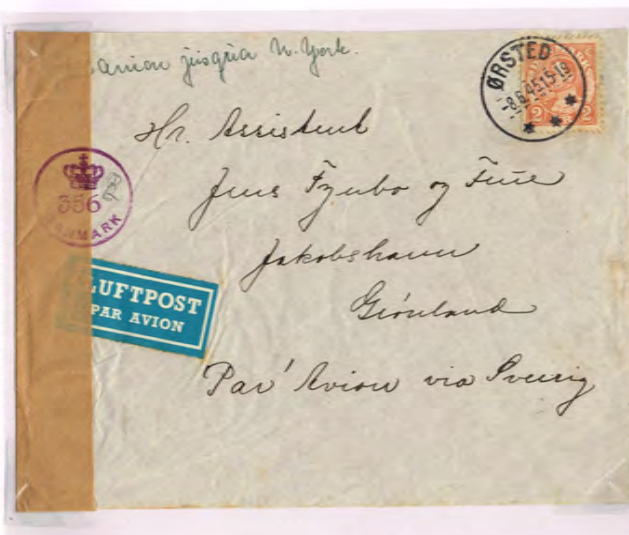 avion jusqu'a N. York.
ØRSTED
-8.6.45.15-19
2
2
Hr. Assistent
Jens Fynbo og Frue
Jakobshavn
Grönland
Par' Avion via Sverig
356
DANMARK
LUFTPOST
PAR AVION